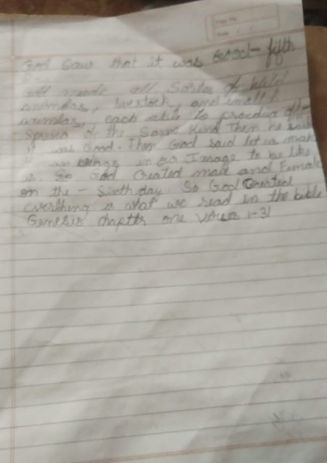 God Saw that it was Good - fifth
all Sorts of Wild
animals, livestock, and small
animals, each able to produce off
Spring of the Same Kind Then he
it was Good. Then God Said let us make
beings in Image to be like
us So God Created male and Female
on the - Sixth day So God Created
everything is what we read in the bible
Genesis chapter one verse 1-31